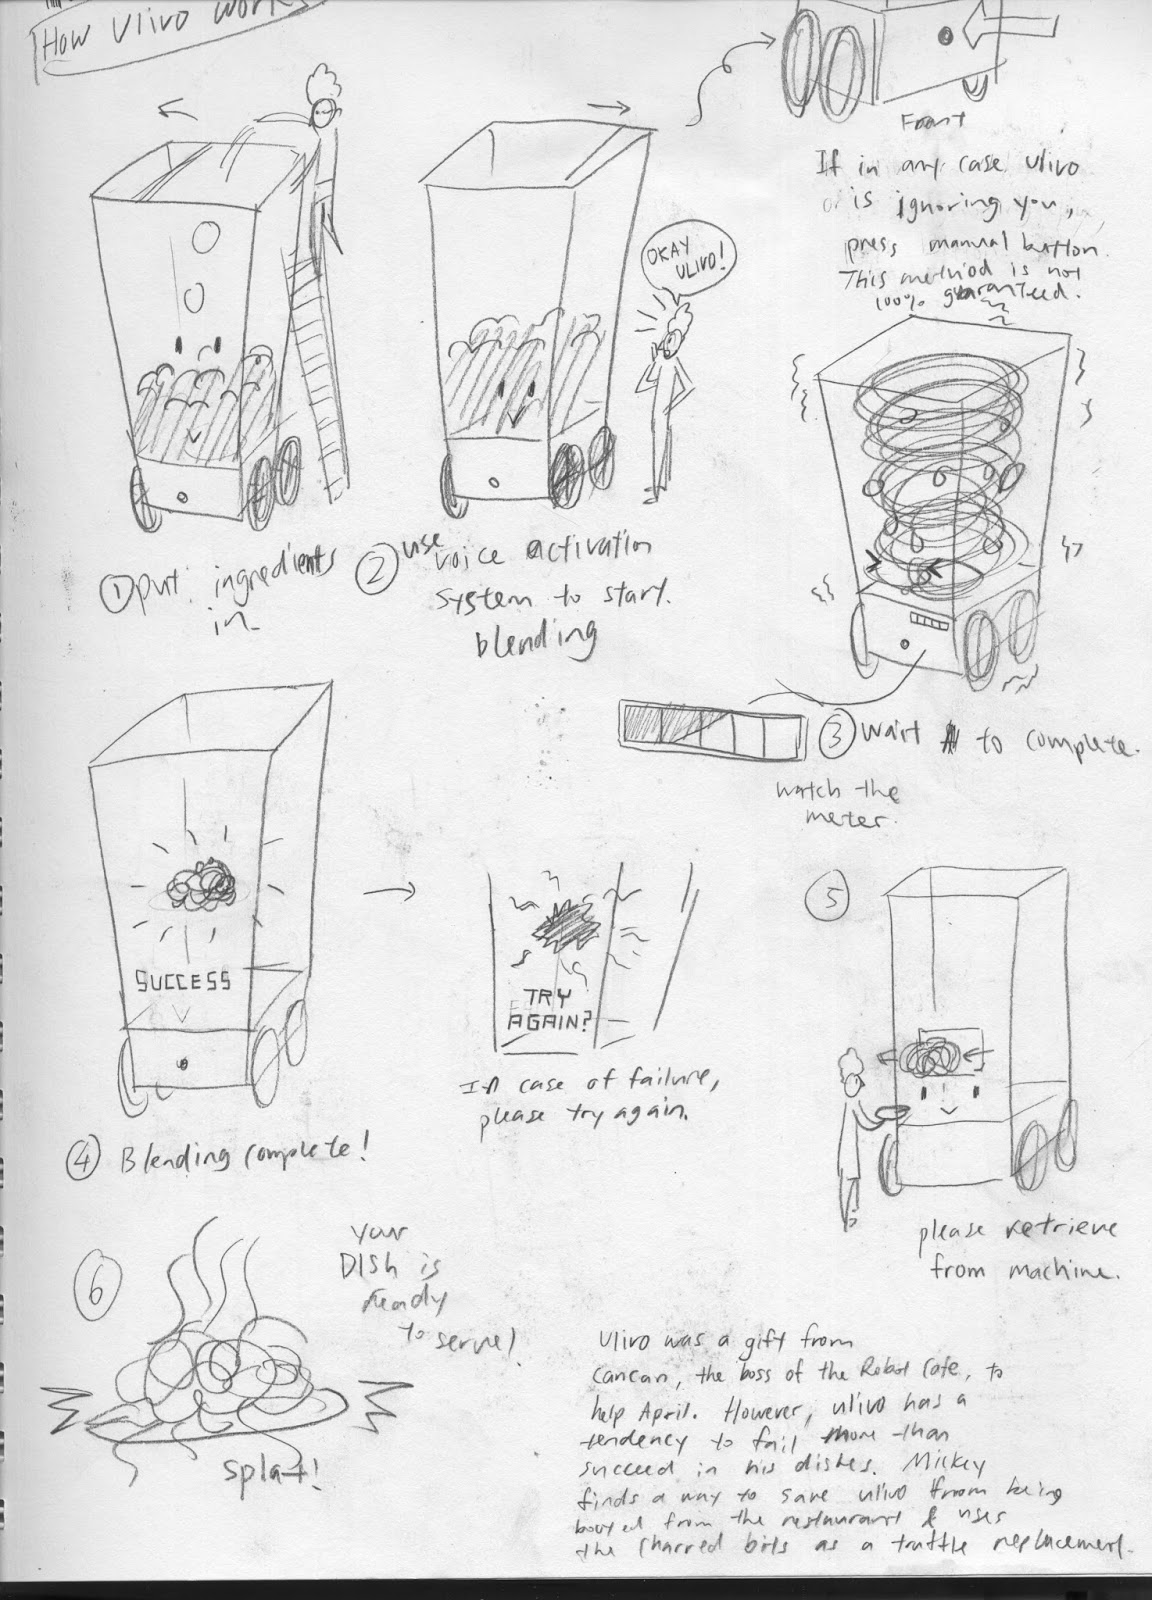 How Ulivo works
Front
If in any case Ulivo
is ignoring you,
press manual button.
This method is not
100% guaranteed.
OKAY
ULIVO!
① put ingredients
in
② use voice activation
system to start
blending
③ wait to complete.
watch the
meter.
SUCCESS
④ Blending complete!
TRY
AGAIN?
In case of failure,
please try again.
⑤
please retrieve
from machine.
⑥
your
DISH is
ready
to serve!
splat!
Ulivo was a gift from
Cancan, the boss of the Robot Cafe, to
help April. However, Ulivo has a
tendency to fail more than
succeed in his dishes. Mickey
finds a way to save Ulivo from being
booted from the restaurant & uses
the charred bits as a truffle replacement.